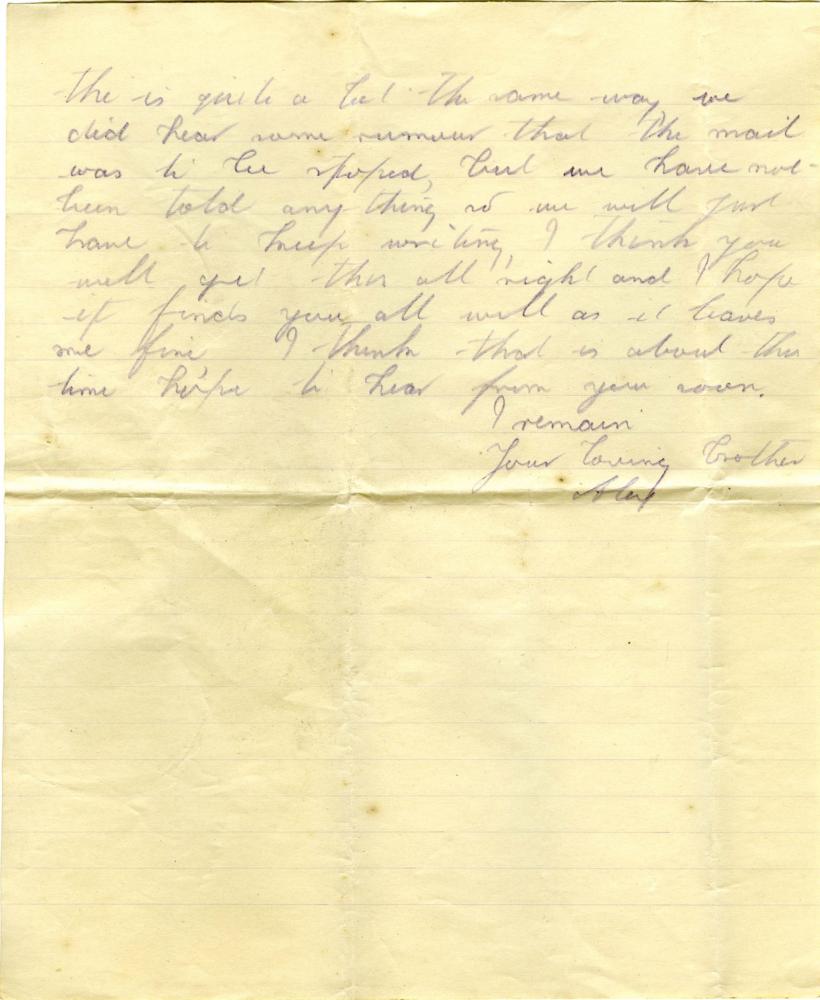 the is quite a lot the same way we
did hear some rumour that the mail
was to be stoped, but we have not
been told any thing so we will just
have to keep writing, I think you
will get this all right and I hope
it finds you all well as it leaves
me fine I think that is about this
time hope to hear from you soon.
I remain
Your loving brother
Alex